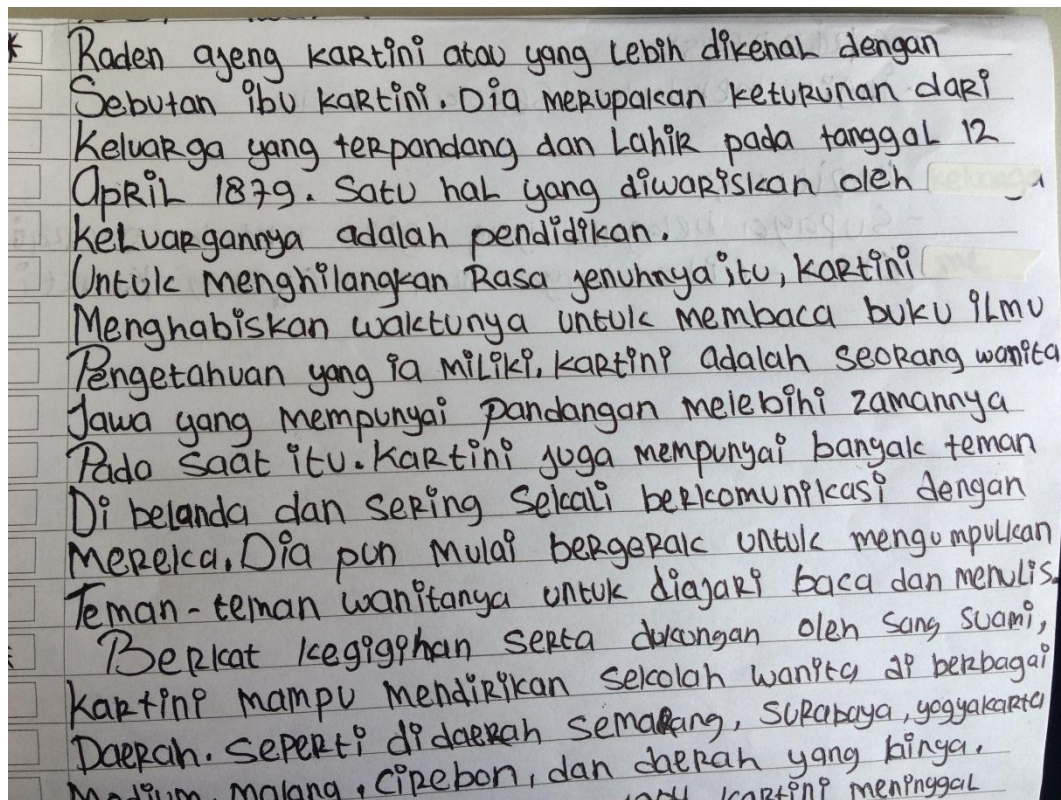 Raden ajeng kartini atau yang Lebih dikenal dengan
Sebutan ibu kartini. Dia merupakan keturunan dari
Keluarga yang terpandang dan Lahir pada tanggal 12
April 1879. Satu hal yang diwariskan oleh
keluargannya adalah pendidikan.
Untuk menghilangkan Rasa jenuhnya itu, kartini
Menghabiskan waktunya untuk membaca buku ilmu
Pengetahuan yang ia miliki. kartini adalah seorang wanita
Jawa yang mempunyai pandangan melebihi zamannya
Pada saat itu. Kartini juga mempunyai banyak teman
Di belanda dan sering sekali berkomunikasi dengan
Mereka. Dia pun mulai bergerak untuk mengumpulkan
Teman-teman wanitanya untuk diajari baca dan menulis.
Berkat kegigihan serta dukungan oleh sang suami,
kartini mampu mendirikan sekolah wanita di berbagai
Daerah. Seperti di daerah semarang, surabaya, yogyakarta
Madium, malang, cirebon, dan daerah yang linya.
kartini meninggal